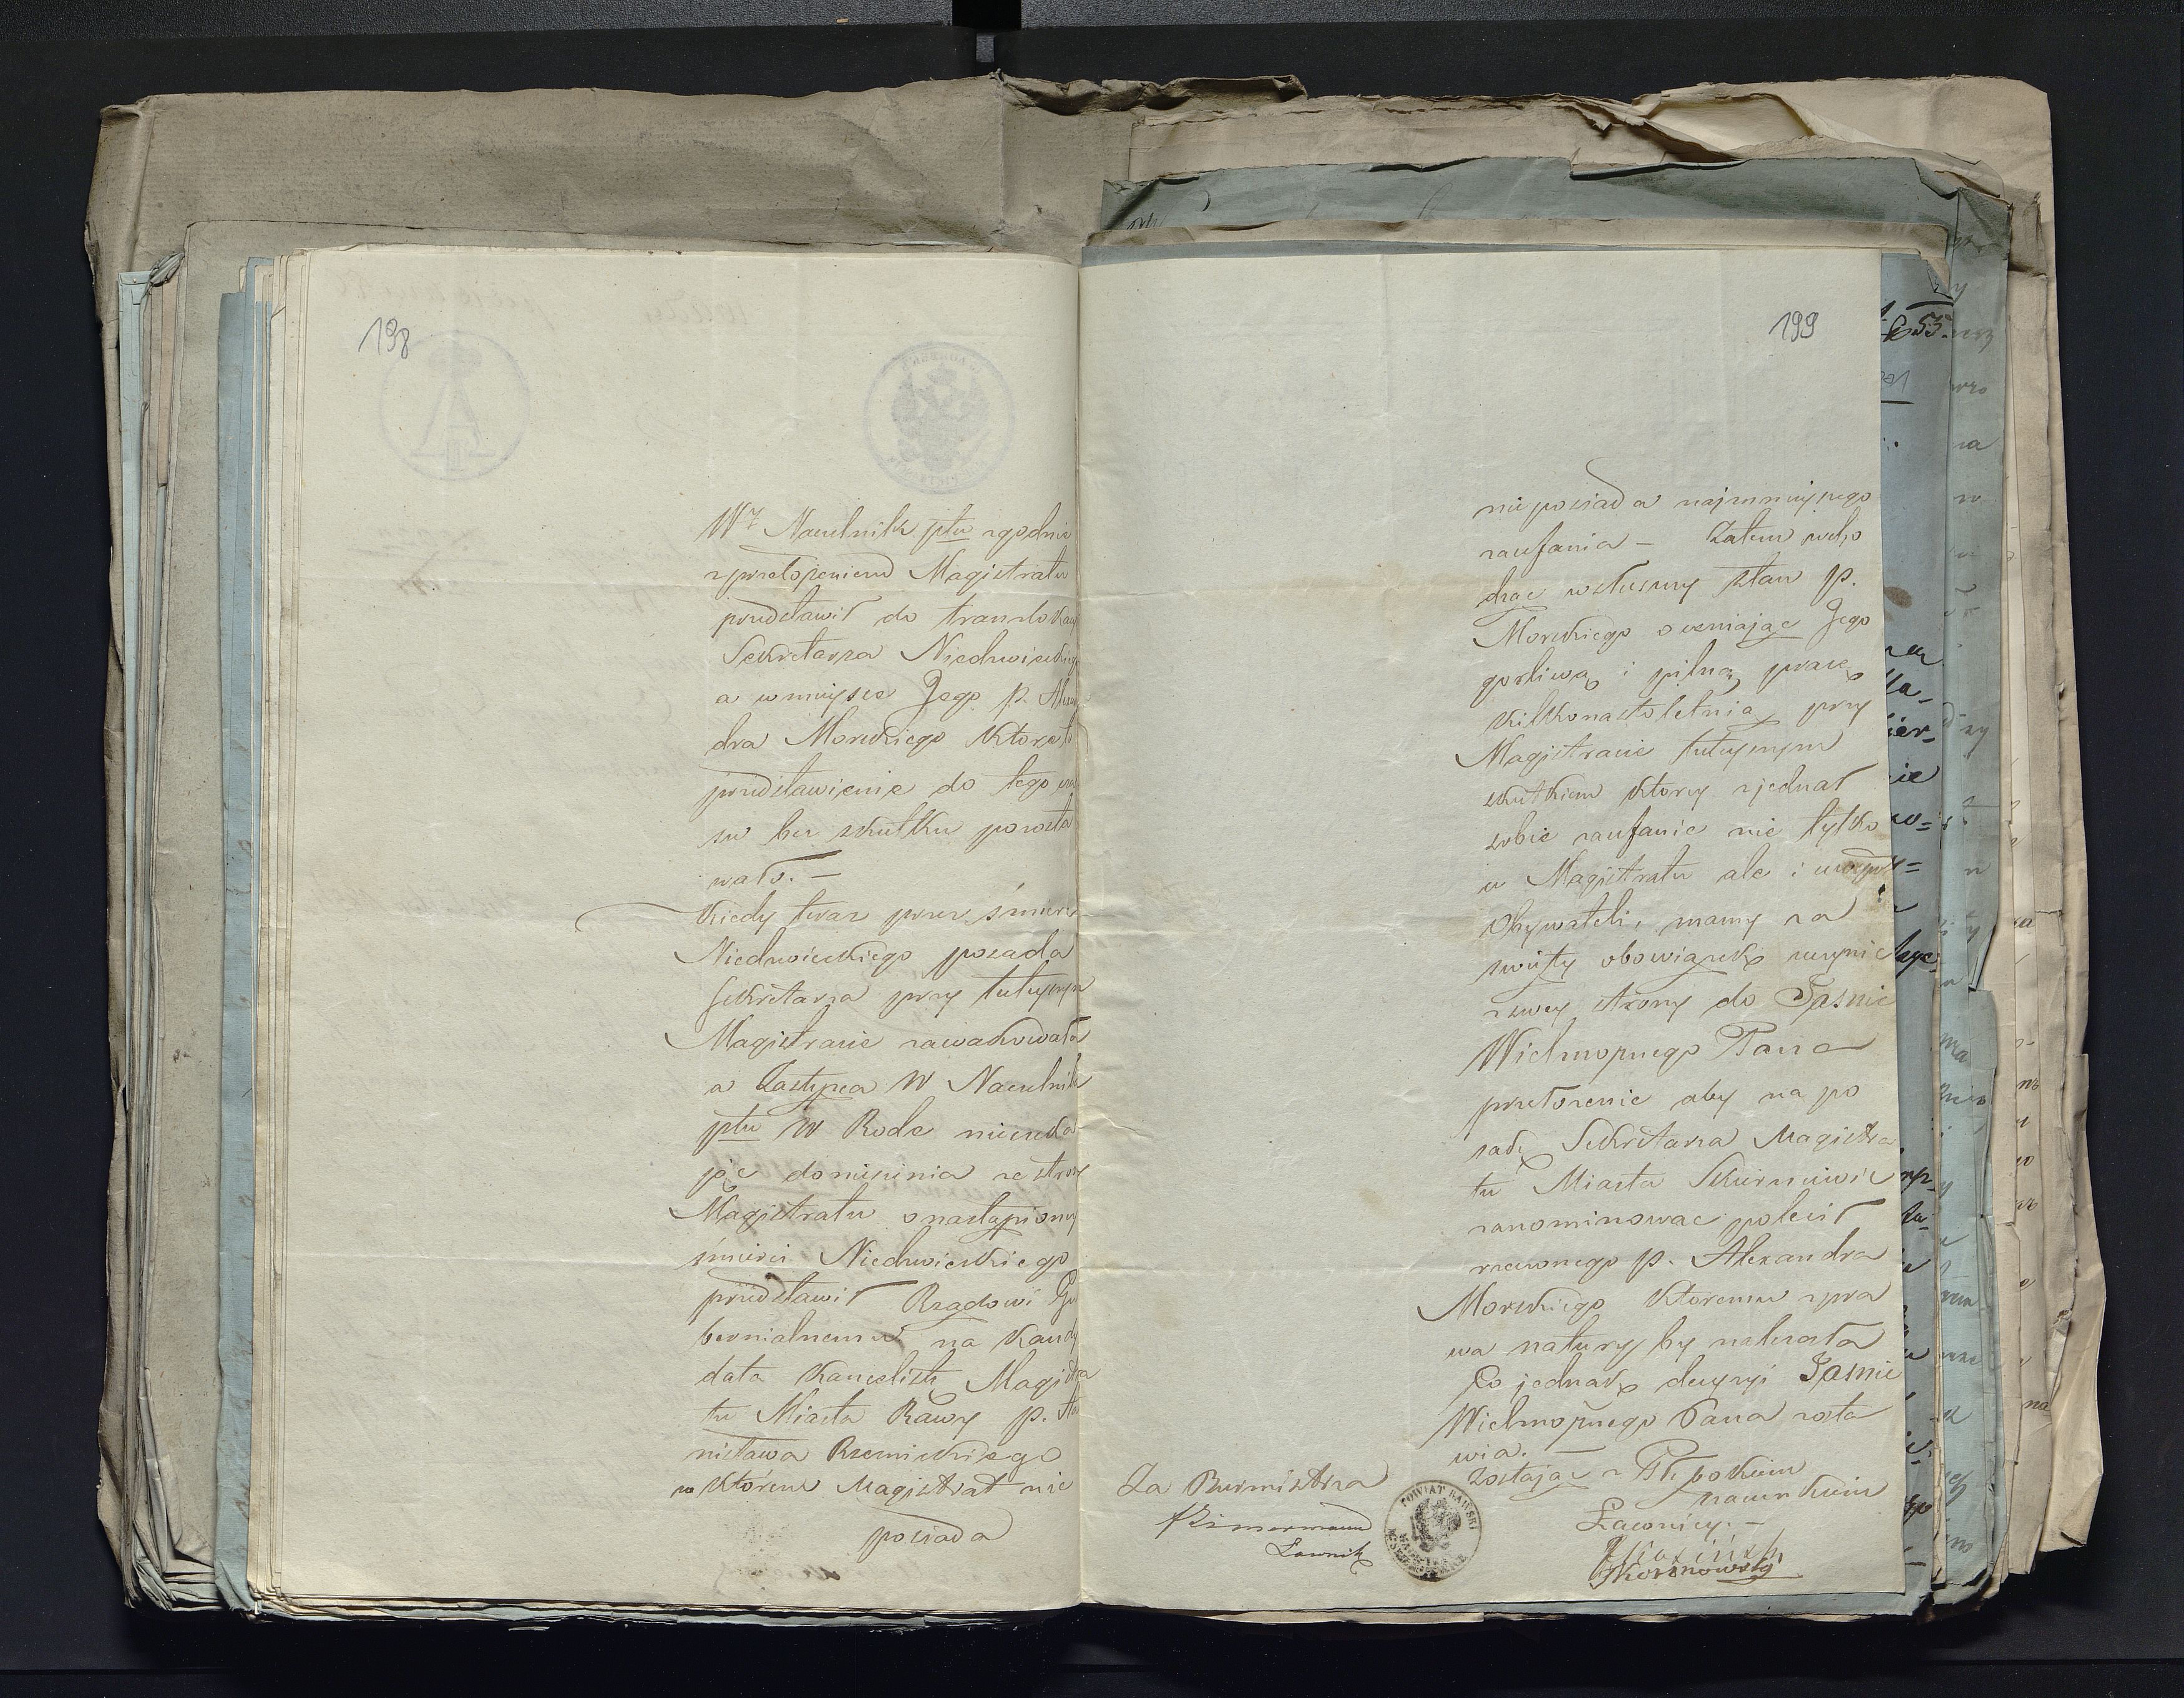 198
Wz Naczelnik ptu zgodnie
z przełożeniem Magistratu
przedstawił do translokacyi
Sekretarza Niedzwieckiego
a wmiejsce Jego p. Alexan
dra Morskiego które to
przedstawienie do tego cza
su bez skutku pozosta
wało. —
Kiedy teraz przez śmierć
Niedzwieckiego posada
Sekretarza przy tutejszym
Magistracie zawakowała
a Zastępca W Naczelnika
ptu W Rode nieczeka
jąc doniesienia ze strony
Magistratu o nastąpioney
śmierci Niedzwieckiego
przedstawił Rządowi Gu
bernialnemu na Kandy
data Kancelistę Magistra
tu Miasta Rawy p. Sta
nisława Rzemieckiego
w którem Magistrat nie
posiada
199
nieposiada najmnieyszego
zaufania — Zatem
wsłuszny stan p.
Morskiego oceniając Jego
gorliwą i pilną pracę
kilkonastoletnią przy
Magistracie tutejszym
skutkiem ktorey zjednał
sobie zaufanie nie tylko
u Magistratu ale i
Obywateli, mamy za
święty obowiązek uczynić
zswey strony do Jasnie
Wielmożnego Pana
przełożenie aby na po
sadę Sekretarza Magistra
tu Miasta Skierniewic
zanominować polecił
rzeczonego p. Alexandra
Morskiego ktoremu zpra
wa natury by należała
Co jednak decyzyi Jasnie
Wielmożnego Pana zosta
wia. —
Zostając z Głębokiem
szacunkiem
Ławnicy. —
Za Burmistrza
Zimermann
Ławnik
POWIAT RAWSKI
655.